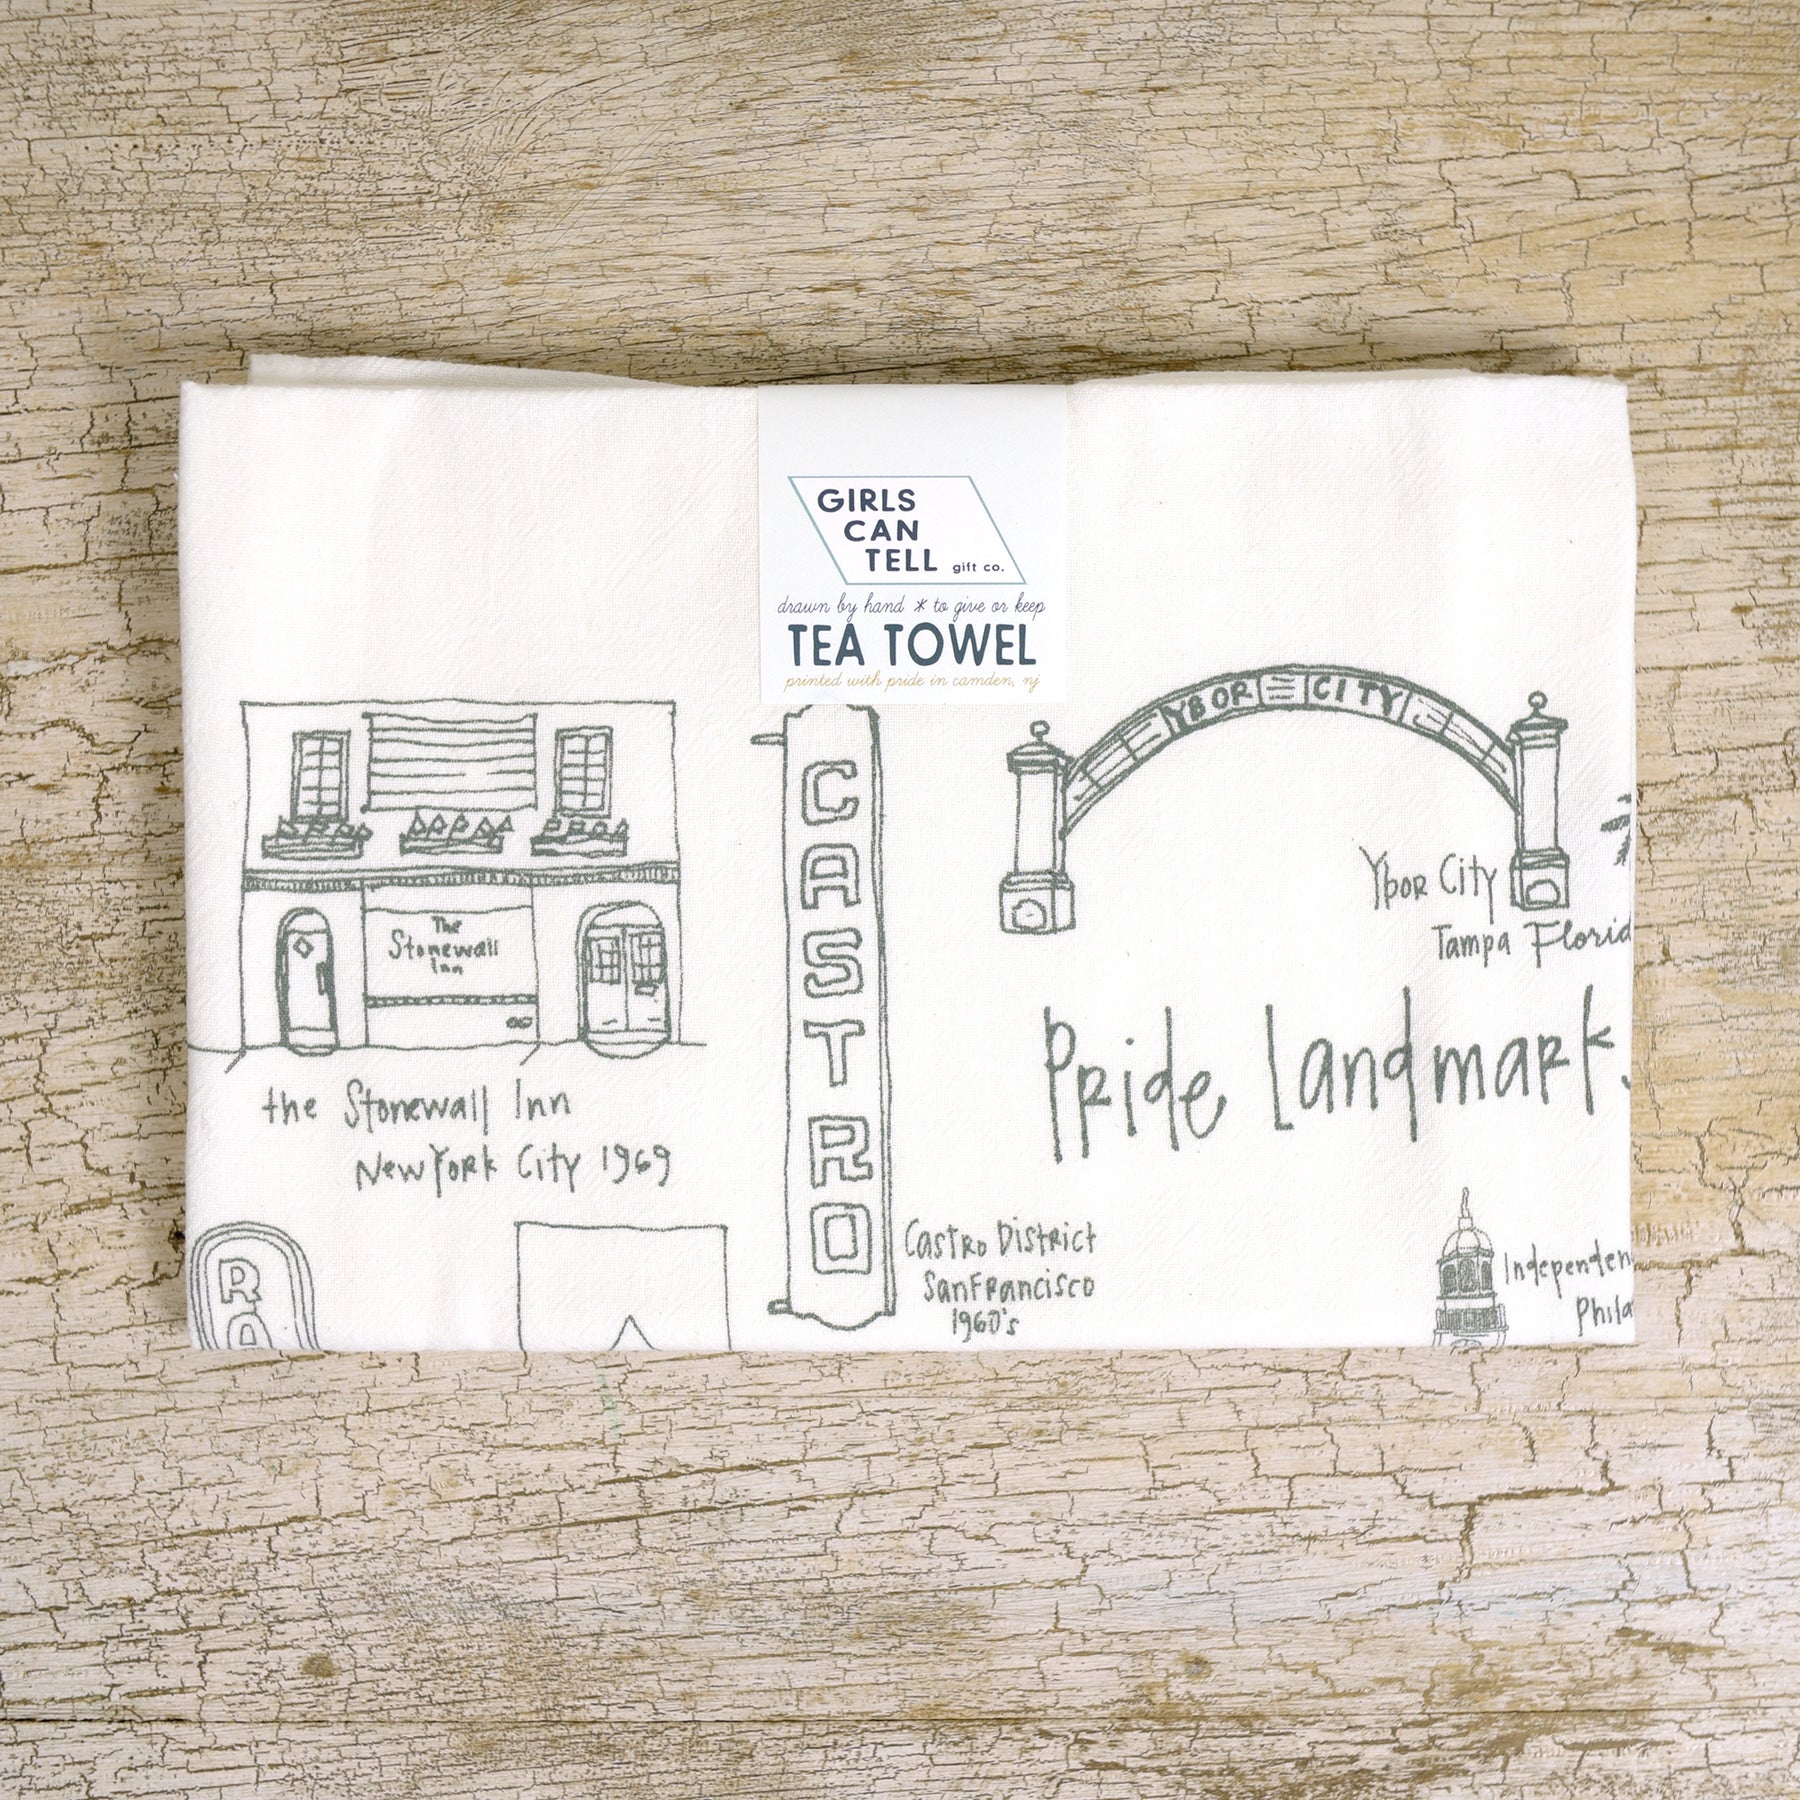 GIRLS
CAN
TELL gift co.
drawn by hand * to give or keep
TEA TOWEL
printed with pride in camden, nj
The
Stonewall
Inn
the Stonewall Inn
New York City 1969
CASTRO
Castro District
San Francisco
1960's
YBOR CITY
Ybor City
Tampa Florid
Pride Landmark
Independen
Phila
RA